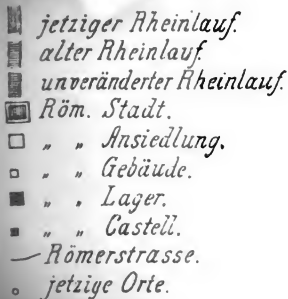 jetziger Rheinlauf.
alter Rheinlauf.
unveränderter Rheinlauf.
Röm. Stadt.
„ „ Ansiedlung.
„ „ Gebäude.
„ „ Lager.
„ „ Castell.
Römerstrasse.
jetzige Orte.